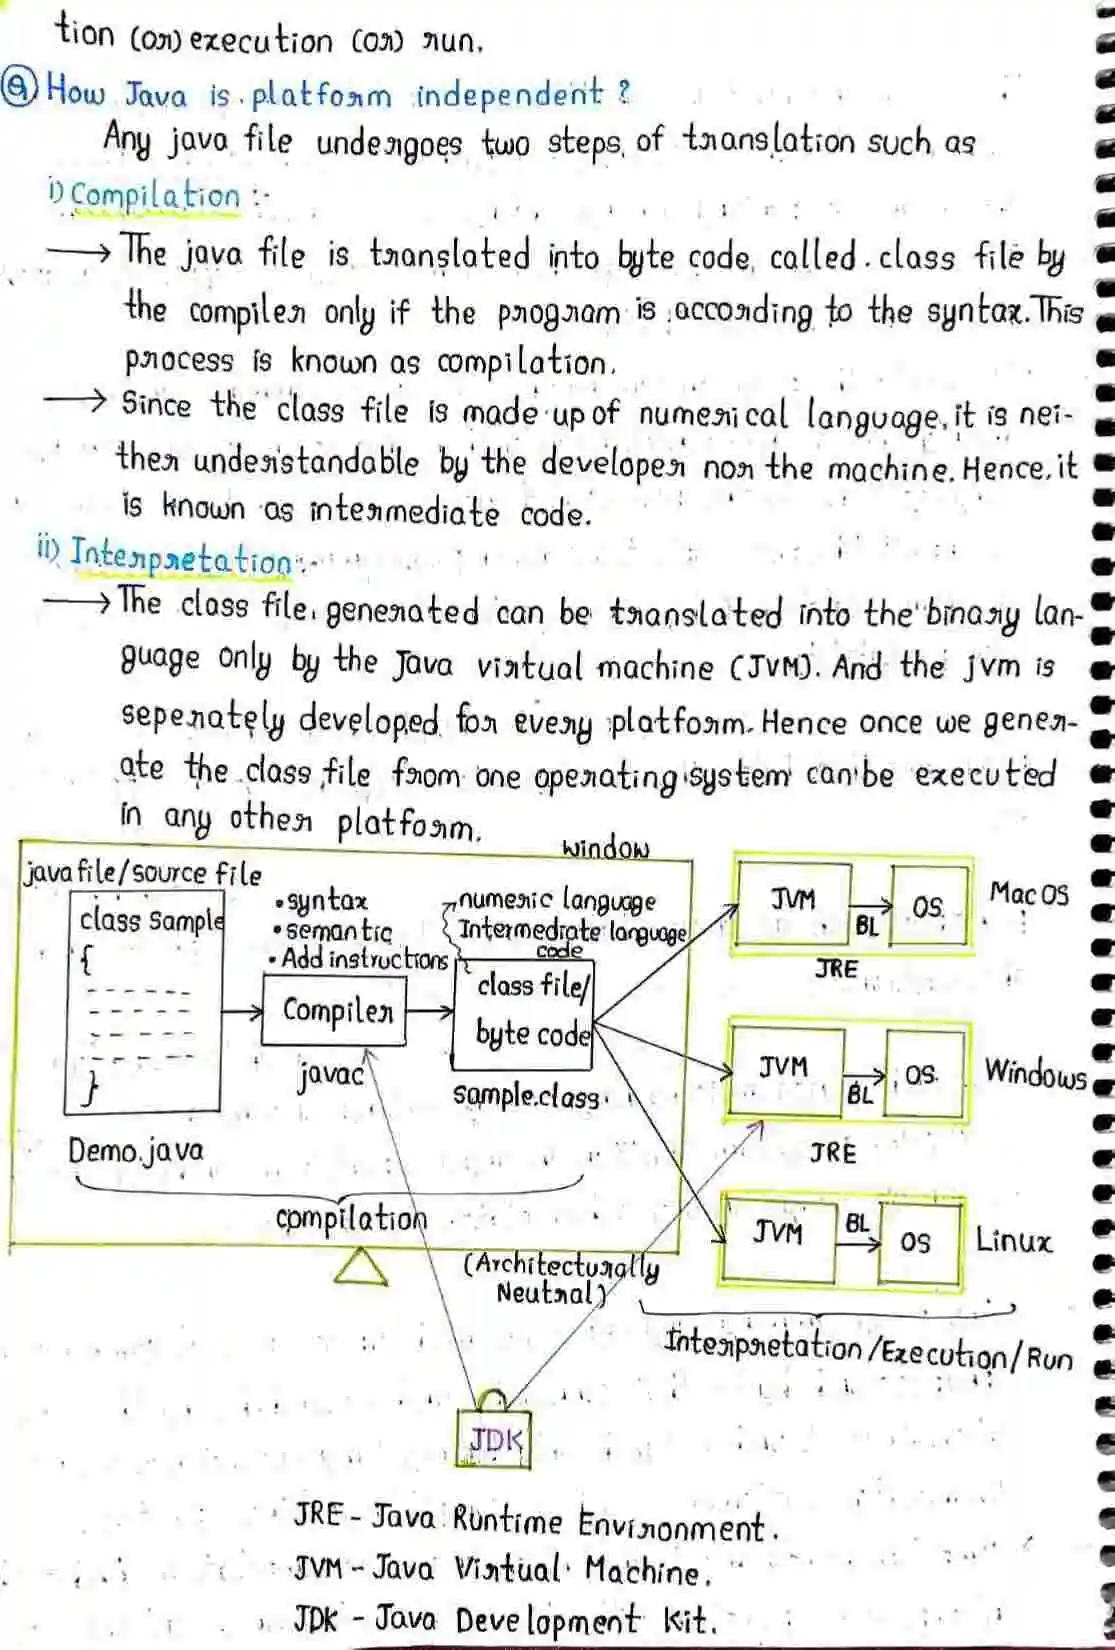 tion (or) execution (or) run.
Q How Java is platform independent?
Any java file undergoes two steps of translation such as
i) Compilation :-
→ The java file is translated into byte code, called .class file by
the compiler only if the program is according to the syntax. This
process is known as compilation.
→ Since the class file is made up of numerical language, it is nei-
ther understandable by the developer nor the machine. Hence, it
is known as intermediate code.
ii) Interpretation :-
→ The class file, generated can be translated into the binary lan-
guage only by the Java virtual machine (JVM). And the jvm is
seperately developed for every platform. Hence once we gener-
ate the class file from one operating system can be executed
in any other platform.
window
java file/source file
class Sample
{
}
Demo.java
•syntax
•semantic
•Add instructions
Compiler
javac
numeric language
Intermediate language
code
class file/
byte code
sample.class
compilation
(Architecturally
Neutral)
JVM
BL
OS
Mac OS
JRE
JVM
BL
OS
Windows
JRE
JVM
BL
OS
Linux
Interpretation/Execution/Run
JDK
JRE - Java Runtime Environment.
JVM - Java Virtual Machine.
JDK - Java Development Kit.